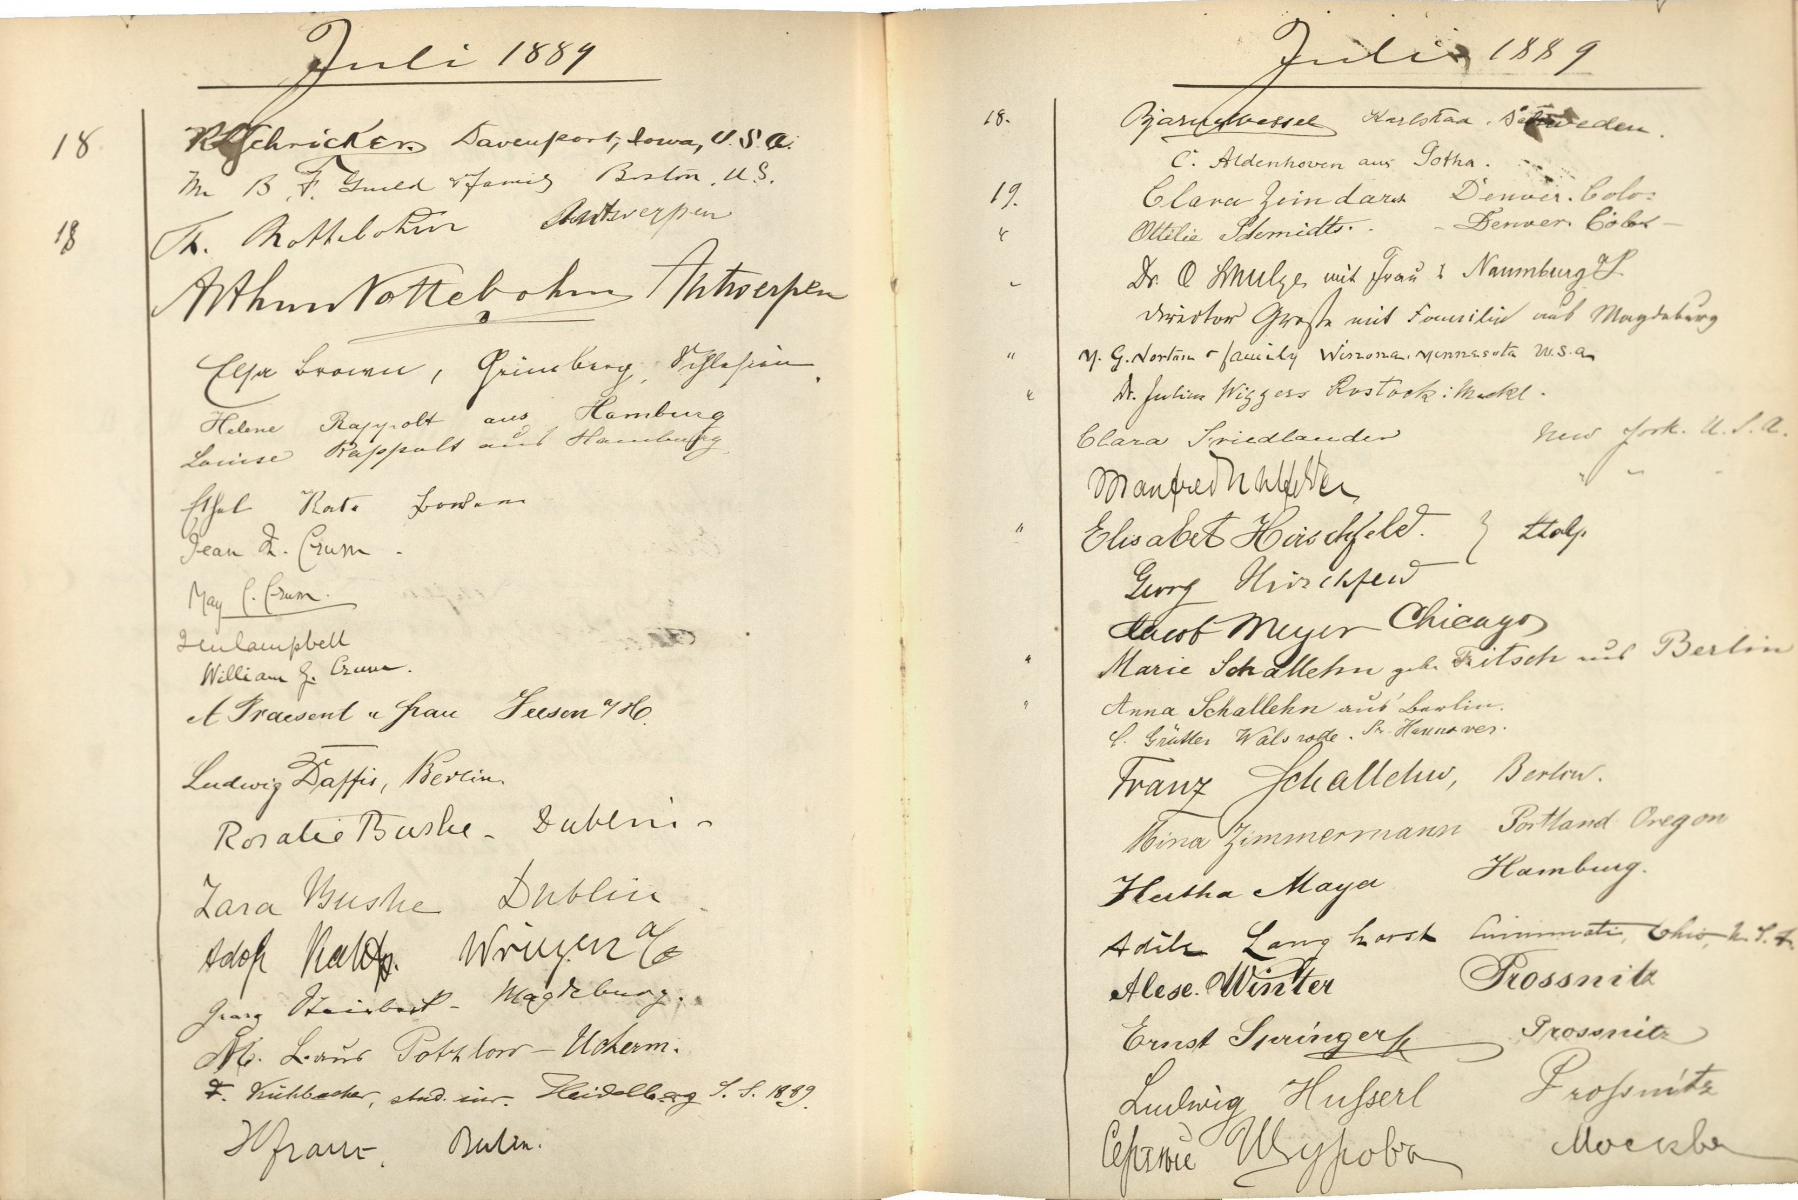 Juli 1889
18 Schricker Davenport, Iowa, U.S.A.
Mr B. F. Guild & family Boston, U.S.
18 Th. Nottebohm Antwerpen
Arthur Nottebohm Antwerpen
Elsa Brown, Grünberg, Schlesien.
Helene Rappolt aus Hamburg
Louise Rappolt aus Hamburg
Ethel Kate Bowden
Jean Crum
May C. Crum.
Campbell
William G. Crum.
A Praesent u frau Seesen a/H.
Ludwig Daffis, Berlin.
Rosalie Bushe - Dublin -
Zara Bushe Dublin
Adolf Wriezen a/O
Georg Magdeburg.
M. L. aus Potzlow - Uckerm.
F. Kühbacher, stud. iur. Heidelberg S. S. 1889.
Berlin.
Juli 1889
18. Bjarne Wessel Karlstad. Sweden.
C. Aldenhoven aus Gotha.
19. Clara Denver. Colo:
" Ottilie Schmidts. - Denver. Color -
" Dr. O mit Frau Naumburg a/S.
Director Große mit Familie aus Magdeburg
" M. G. Norton & family Winona, Minnesota U.S.A
" Dr. Julius Wiggers Rostock i. Meckl.
Clara Friedlander New York. U.S.A.
Manfred " "
" Elisabet Hirschfeld. } Stolp.
Georg Hirschfeld
Jacob Meyer Chicago
" Marie Schallehn geb. Fritsch aus Berlin
" Anna Schallehn aus Berlin.
C. Grütter Walsrode. Pr. Hannover.
Franz Schallehn, Berlin.
Mina Zimmermann Portland Oregon
Hertha Mayer Hamburg.
Adele Langhorst Cincinnati, Ohio, U.S.A.
Winter Prossnitz
Ernst Springer Prossnitz
Ludwig Husserl Proßnitz
Сергѣй Щурова Москва